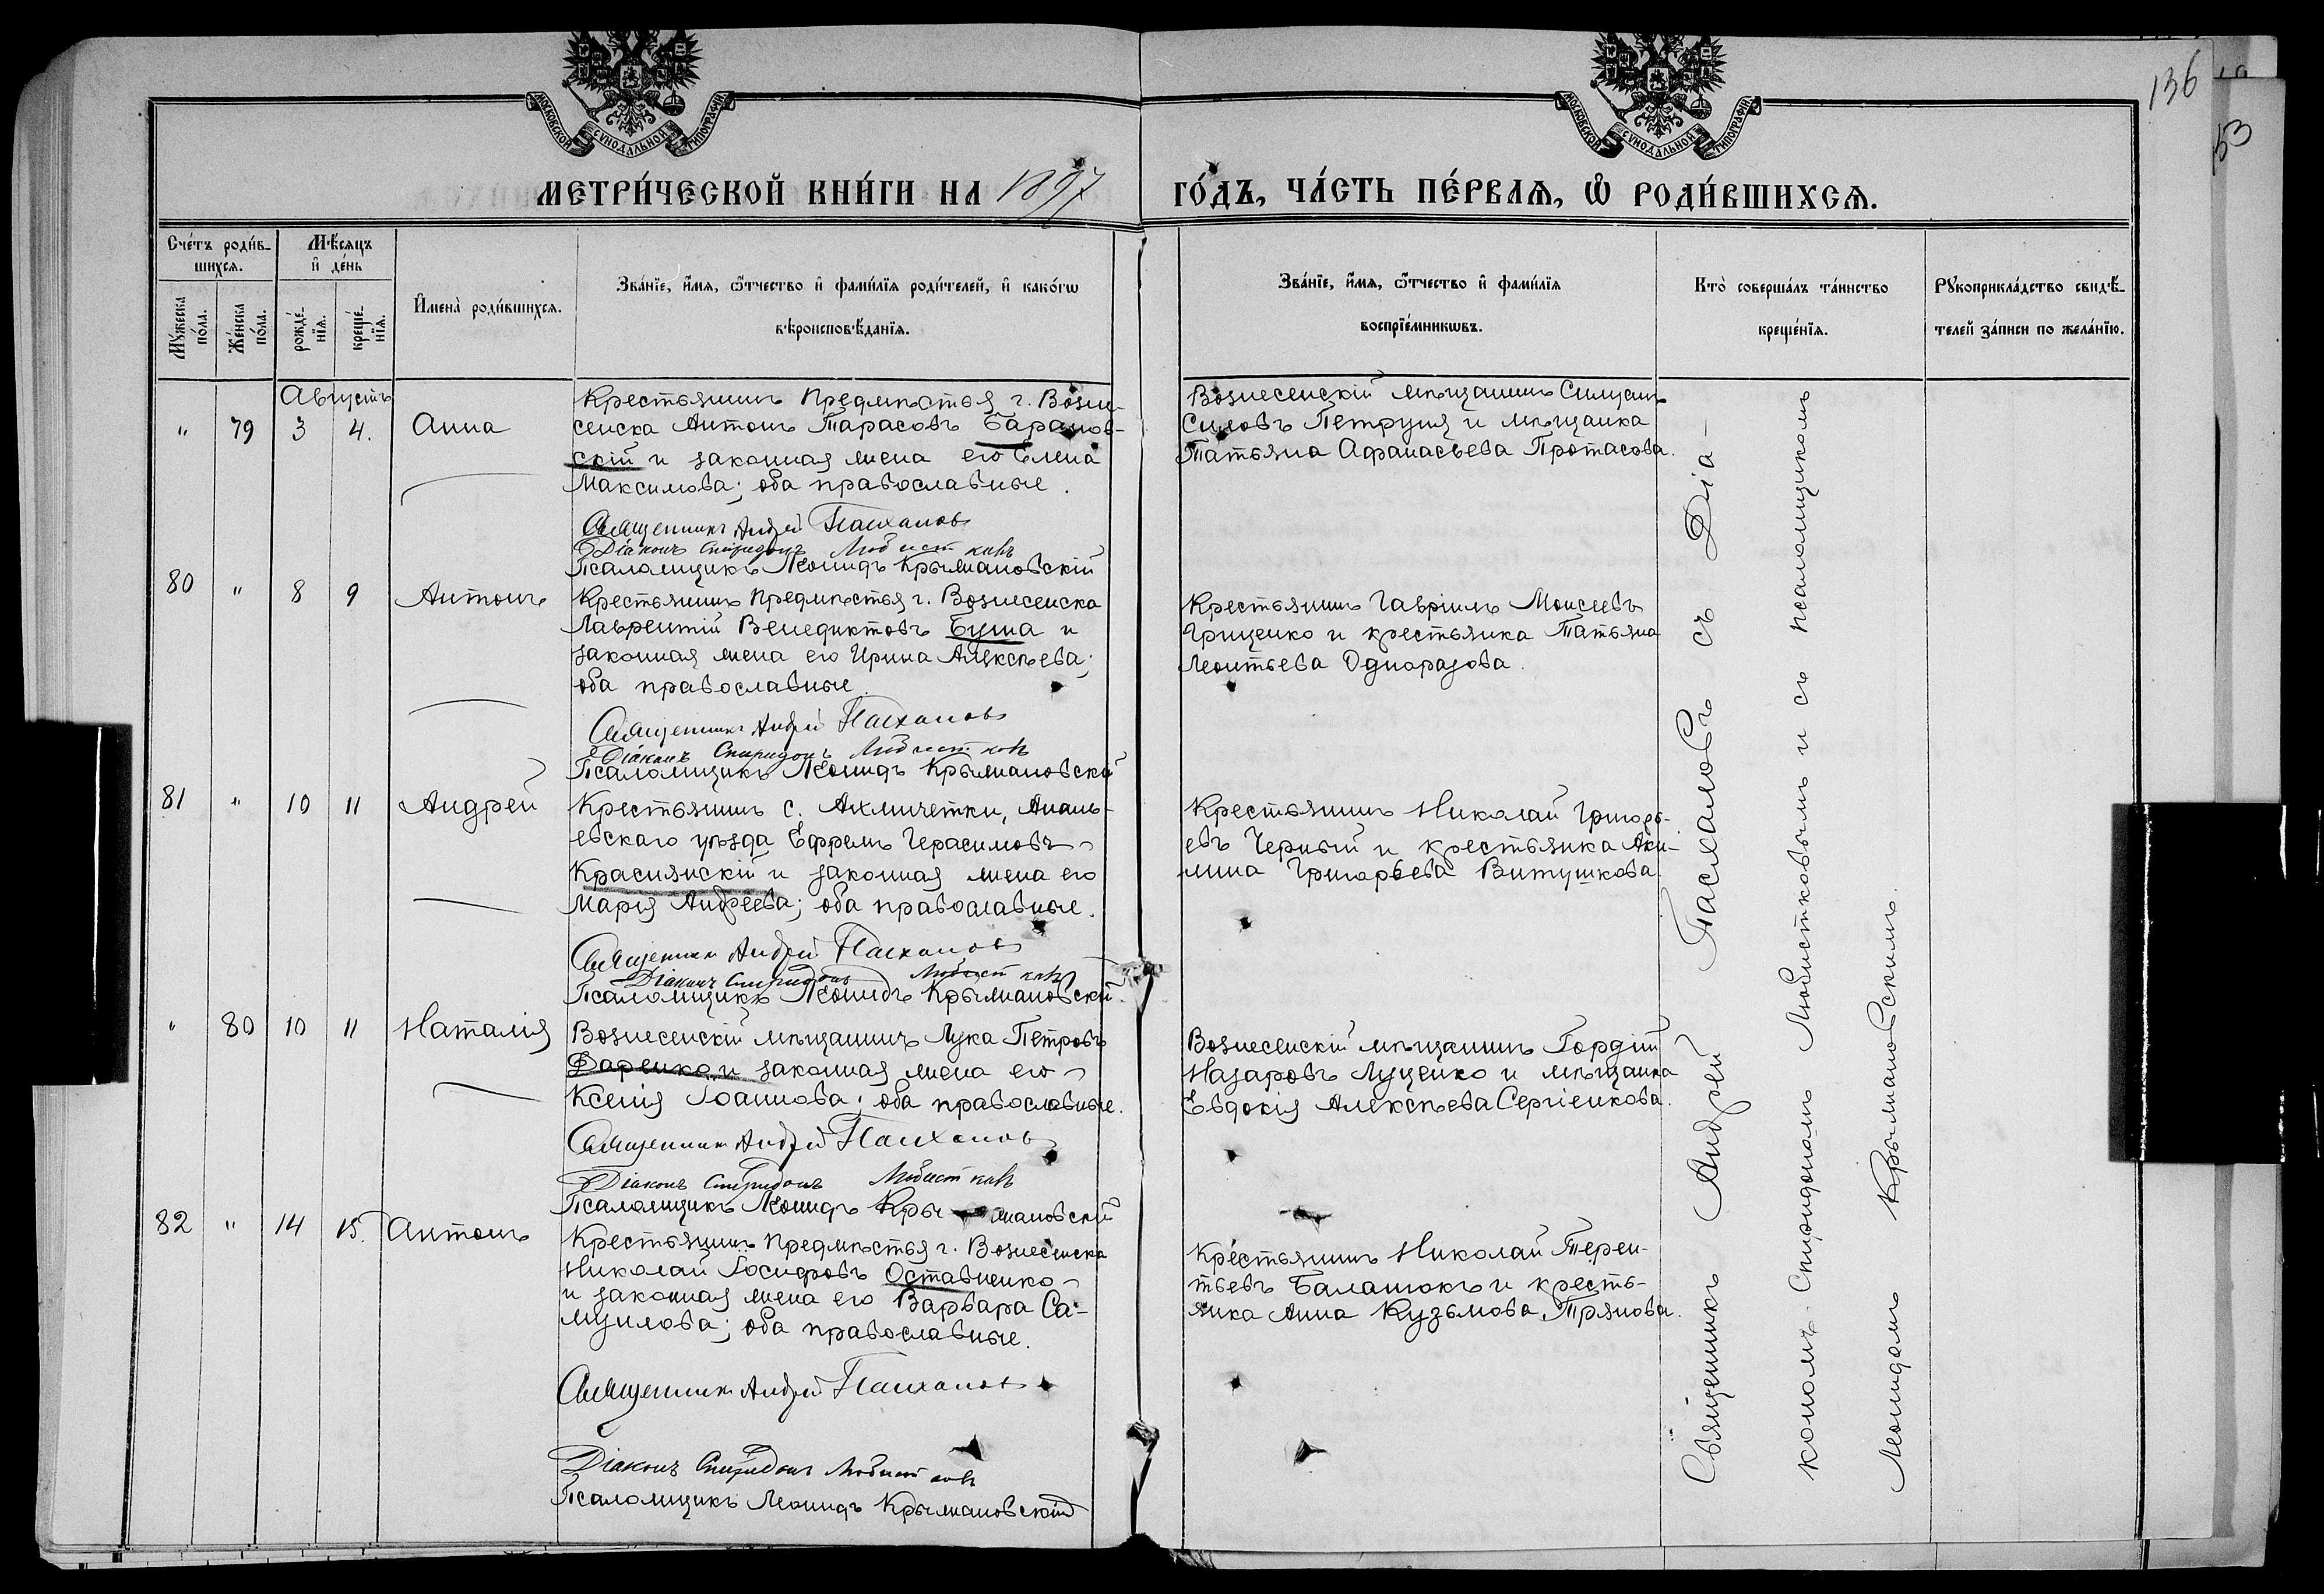 136
53
МОСКОВСКОЙ СѴНОДАЛЬНОЙ ТИПОГРАФІИ
МОСКОВСКОЙ СѴНОДАЛЬНОЙ ТИПОГРАФІИ
МЕТРИ́ЧЕСКОЙ КНИ́ГИ НА 1897 ГО́ДЪ, ЧА́СТЬ ПЕ́РВАѦ, Ѽ РОДИ́ВШИХСѦ.
Сче́тъ роди́в-
шихсѧ.
Мꙋ́жеска по́ла.
Же́нска по́ла.
Мѣ́сяцъ
и҆ де́нь
рожде́-
нїѧ.
креще́-
нїѧ.
И҆мена̀ роди́вшихсѧ.
Зва́нїе, и҆́мѧ, ѻ҆́тчество и҆ фами́лїѧ роди́телей, и҆ како́гѡ
вѣроисповѣ́данїѧ.
Зва́нїе, и҆́мѧ, ѻ҆́тчество и҆ фами́лїѧ
воспрїе́мникѡвъ.
Кто̀ соверша́лъ та́инство
креще́нїѧ.
Рꙋкоприкла́дство свидѣ́-
телей за́писи по жела́нїю.
Августъ
" 79 3 4. Анна
Крестьянинъ предмѣстья г. Возне-
сенска Антонъ Тарасовъ Баранов-
скій и законная жена его Елена
Максимова; оба православные.
Священникъ Андрей Пасхаловъ
Діаконъ Спиридонъ Любистковъ
Псаломщикъ Леонидъ Крыжановскій
Вознесенскій мѣщанинъ Симеонъ
Силовъ Петруня и мѣщанка
Татьяна Афанасьева Протасова.
80 " 8 9 Антонъ
Крестьянинъ предмѣстья г. Вознесенска
Лаврентій Венедиктовъ Буша и
законная жена его Ирина Алексѣева;
оба православные.
Священникъ Андрей Пасхаловъ
Діаконъ Спиридонъ Любистковъ
Псаломщикъ Леонидъ Крыжановскій
Крестьянинъ Гавріилъ Моисеевъ
Гриценко и крестьянка Татьяна
Леонтьева Одноразова.
81 " 10 11 Андрей
Крестьянинъ с. Ахмечетки, Анань-
евскаго уѣзда Ефремъ Герасимовъ
Краснянскій и законная жена его
Марія Андреева; оба православные.
Священникъ Андрей Пасхаловъ
Діаконъ Спиридонъ Любистковъ
Псаломщикъ Леонидъ Крыжановскій
Крестьянинъ Николай Григорь-
евъ Черный и крестьянка Аки-
лина Григорьева Витушкова.
" 80 10 11 Наталія
Вознесенскій мѣщанинъ Лука Петровъ
Фаренко и законная жена его
Ксенія Іоаннова; оба православные.
Священникъ Андрей Пасхаловъ
Діаконъ Спиридонъ Любистковъ
Псаломщикъ Леонидъ Крыжановскій
Вознесенскій мѣщанинъ Гордій
Назаровъ Луценко и мѣщанка
Евдокія Алексѣева Сергіенкова.
82 " 14 15. Антонъ
Крестьянинъ предмѣстья г. Вознесенска
Николай Іосифовъ Оставненко
и законная жена его Варвара Са-
муилова; оба православные.
Священникъ Андрей Пасхаловъ
Діаконъ Спиридонъ Любистковъ
Псаломщикъ Леонидъ Крыжановскій
Крестьянинъ Николай Терен-
тьевъ Балашокъ и кресть-
янка Анна Кузьмова Трянова.
Священникъ Андрей Пасхаловъ съ Діа-
кономъ Спиридономъ Любистковымъ и съ псаломщикомъ
Леонидомъ Крыжановскимъ.